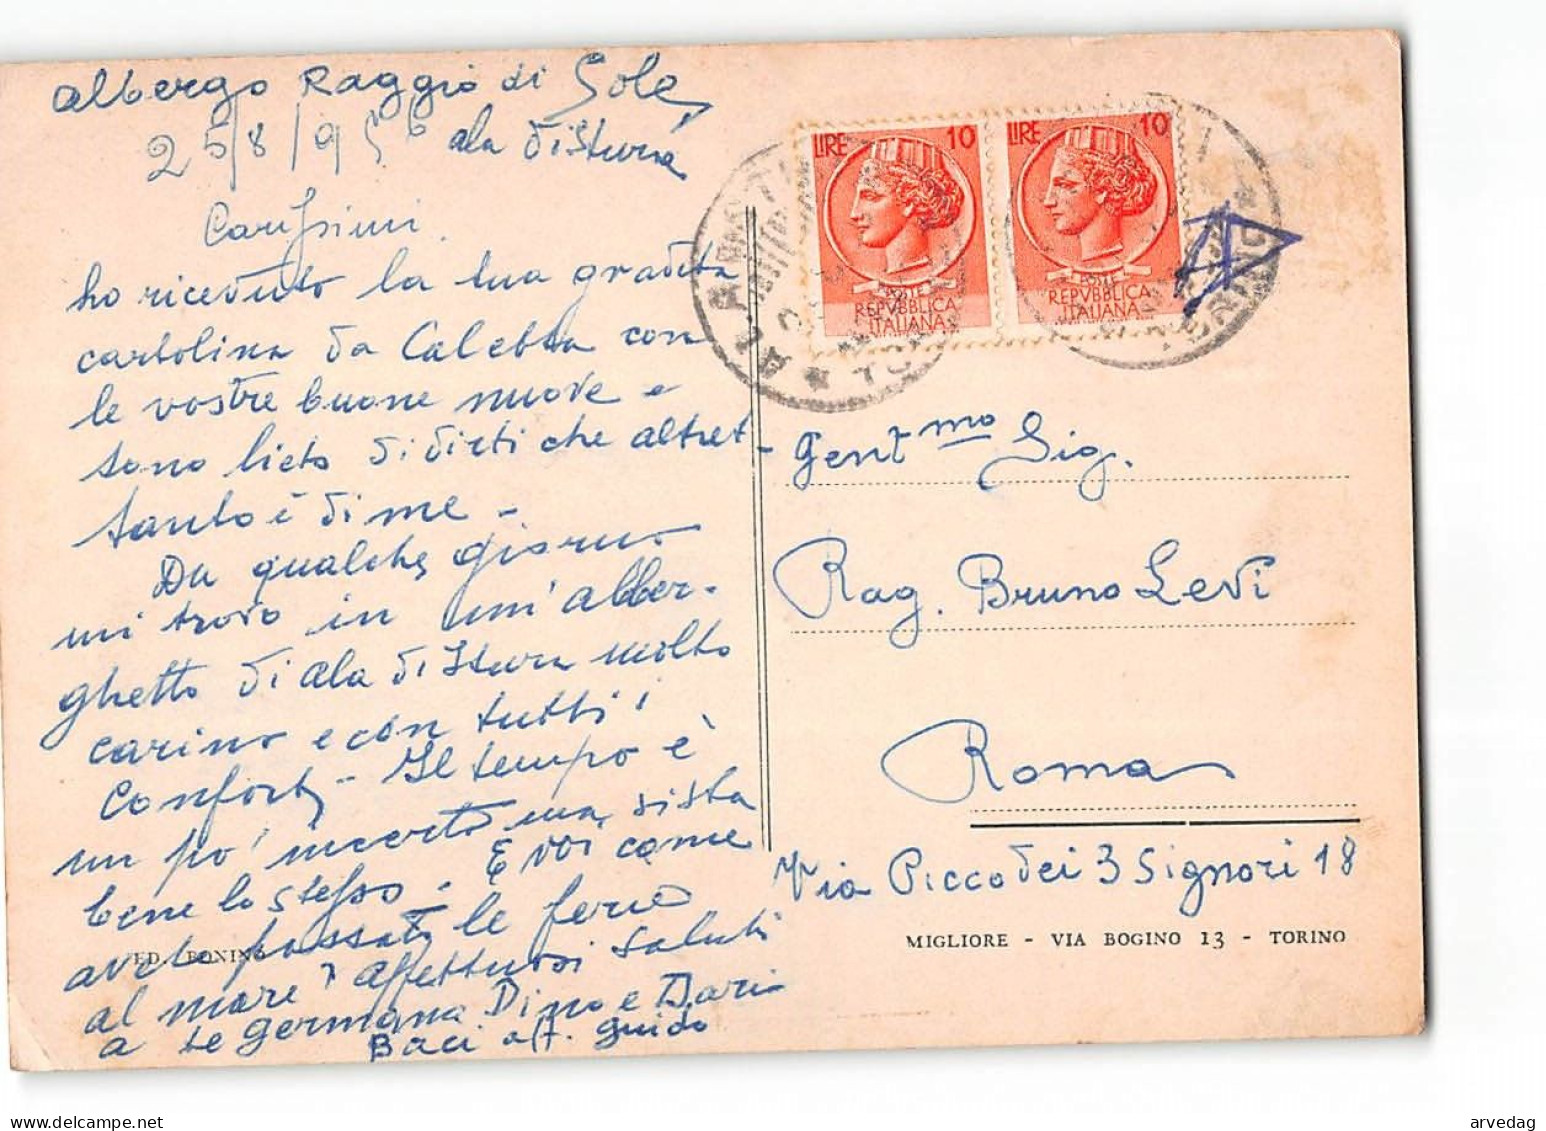 albergo Raggio di Sole,
25/8/956 ala di Stura
Carissimi
ho ricevuto la tua gradita
cartolina da Caletta con
le vostre buone nuove e
sono lieto di dirti che altret-
tanto è di me -
Da qualche giorno
mi trovo in un'alber-
ghetto di ala di Stura molto
carino e con tutti i
Confort - Il tempo è
un po' incerto ma si sta
bene lo stesso - E voi come
avete passato le ferie
al mare? Affettuosi saluti
a te Germana Dino e Dario
Baci aff. Guido
ED. BONINO
LIRE 10
POSTE
REPVBBLICA
ITALIANA
LIRE 10
POSTE
REPVBBLICA
ITALIANA
Gent.mo Sig.
Rag. Bruno Levi
Roma
Via Picco dei 3 Signori 18
MIGLIORE - VIA BOGINO 13 - TORINO
arvedag